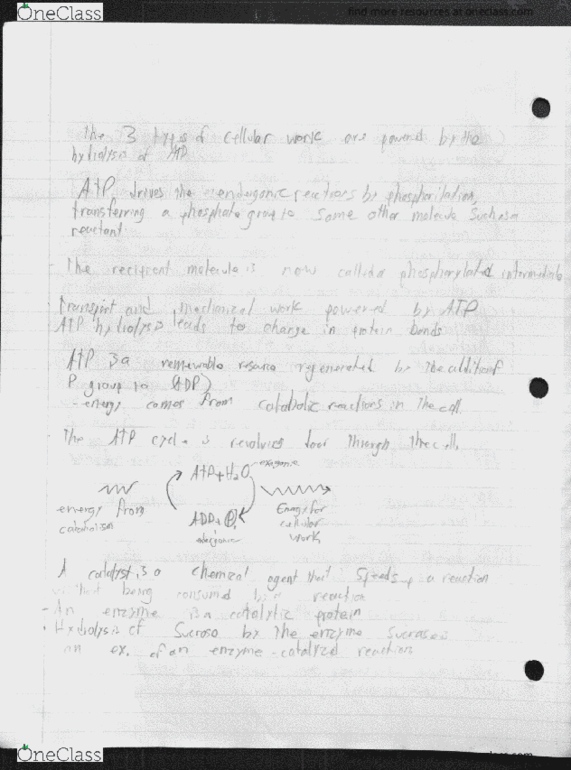 OneClass
find more resources at oneclass.com
The 3 types of cellular work are powered by the
hydrolysis of ATP
ATP drives the endergonic reactions by phosphorilation,
transferring a phosphate group to some other molecule such as a
reactant
- The recipient molecule is now called a phosphorylated intermediate
Transport and mechanical work powered by ATP
ATP hydrolysis leads to change in protein bonds
ATP is a renewable resource regenerated by the addition of
P group to (ADP)
- energy comes from catabolic reactions in the cell
- The ATP cycle is revolving door through the cell
ATP + H2O
energy from
catabolism
ADP + P
Energy for
cellular
work
A catalyst is a chemical agent that speeds up a reaction
without being consumed by a reaction
- An enzyme is a catalytic protein
- Hydrolysis of Sucrose by the enzyme sucrase is
an ex. of an enzyme-catalyzed reaction
OneClass